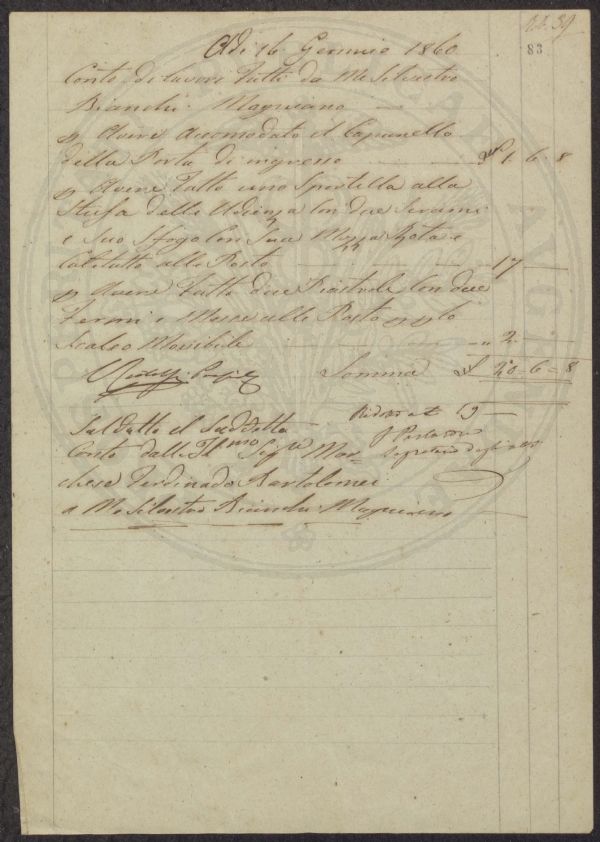 83
Adi 16 Gennaio 1860
Conto di lavori fatti da Me Silvestro
Bianchi Magniano
p Avere Acomodato il Capanello
della Porta di ingresso 1 6 8
p Avere Fatto uno Sportello alla
Stufa delle Udienza Con due Serami
e Suo Sfogo Con Sua Mezza Rota e
Col tutto alla Posto 17
p Avere Fatto due Piastrele Con due
Fermi e Messe alle Posto p lo
Scaleo Movibile 2
Somma £ 20 = 6 = 8
Ridotto a £ 19
Saldatto il Suddetto
Conto dalle Ill^mo Sig^re Mar
Segretario degli
chese Ferdinado Bartolomei
a Me Silvestro Bianchi Magniano